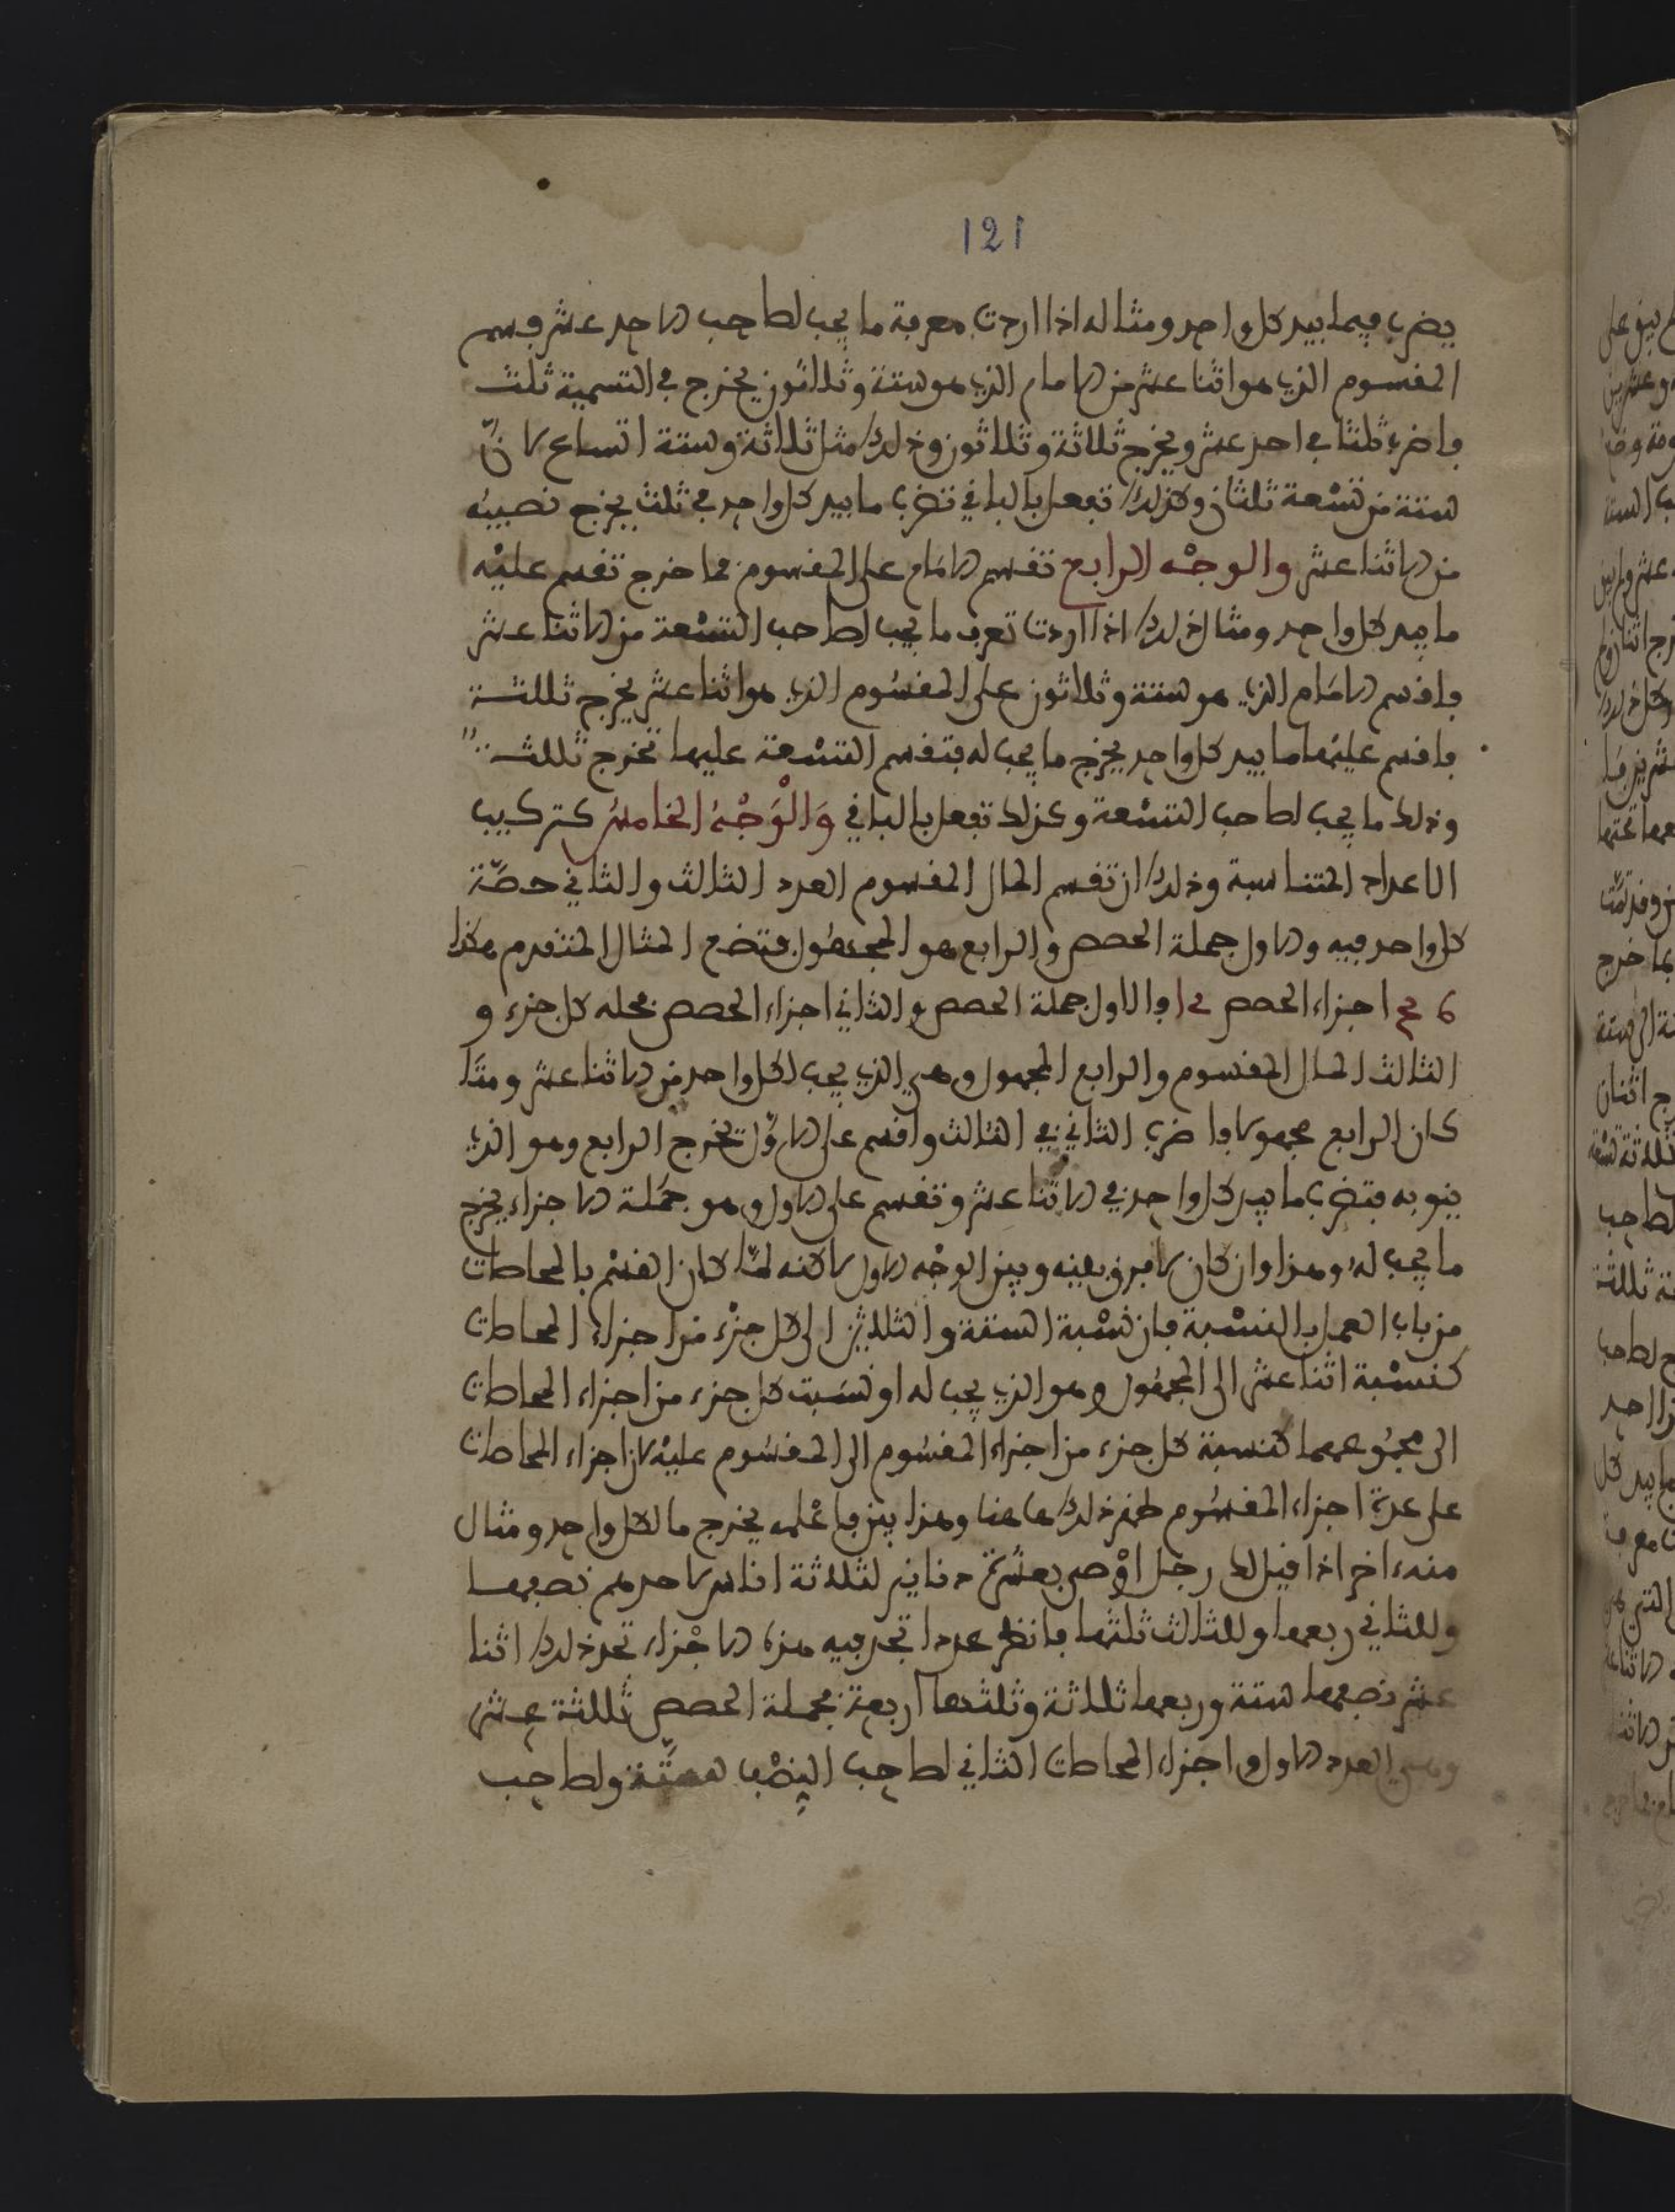 121
يضرب فيما بيد كل واحد ومثاله اذا اردت معرفة ما يجب لصاحب الاحد عشر فسم
المفسوم الذي هو اثنا عشر من الامام الذي هو ستة وثلاثون يخرج في التسمية ثلث
فاضرب ثلثا في احد عشر ويخرج ثلاثة وثلاثون وذلك مثل ثلاثة وستة اتساع لانّ
ستة من تسْعة ثلثان وكذلك تفعل بالباقي تضرب ما بيد كل واحد في ثلث يخرج نصيبه
من الاثنا عشر والوجْه الرابع تقسم الامَام على المفسوم فما خرج تقسم عليْه
ما بيد كل واحد ومثال ذلك اذا اردت تعرف ما يجب لصاحب التسْعة من الاثنا عشر
فاقسم الامَام الذي هو ستة وثلاثون على المقسُوم الذي هو اثنا عشر يخرج ثلثة
فاقسم عليْها ما بيد كل واحد يخرج ما يجب له فتقسم التسْعة عليها تخرج ثلث
وذلك ما يجب لصاحب التسْعة وكذلك تفعل بالباقي وَالْوَجْهُ الخامسُ كتركيب
الاعداد المتناسبة وذلك ان تقسم المال المقسوم العدد الثالث والثاني حصّة
كل واحد فيه والاول جملة الحصص والرابع هو المجهُول فتضع المثال المتقدم هكذا
اجزاء الحصص فالاول جملة الحصص والثاني اجزاء الحصص محله كل جزء و
الثالث المال المقسوم والرابع المجهول وهي الذي يجب لكل واحد من الاثنا عشر ومتَا
كان الرابع مجهولا فاضرب الثاني في الثالث واقسم على الاوّل تخرج الرابع وهو الذي
ينوبه فتضرب ما بيد كل واحد في الاثنا عشر وتقسم على الاول وهو جمْلة الاجزاء يخرج
ما يجب لهُ وهذا وان كان لا فرق بينه وبين الوجْه الاول لاكنه لمّا كان القسْم بالمحاصات
من باب العمل بالنسْبة فان نسْبة الستة والثلاثين الى كل جزْء من اجزاء المحاصات
كنسْبة اثنا عشر الى المجهُول وهو الذي يجب له او نسَبت كل جزء من اجزاء المحاصات
الى مجمُوعهما كنسبة كل جزء من اجزاء المقسُوم الى المقسُوم عليْه لان اجزاء المحاصات
على عدة اجزاء المقسُوم ذلك هاهنا وهذا بين فاعْلمه يخرج ما لكل واحد ومثال
منه ءاخر اذا قيل لك رجل اوْصى بعشْرة دنانير لثلاثة اناس لاحدهم نصفهما
وللثاني ربعهما وللثالث ثلثهما فانظر عددا تجد فيه هذه الاجْزاء تجد ذلك اثنا
عشر نصفهما ستة وربعهما ثلاثة وثلثهما اربعة فجملة الحصص ثلثة عشر
العدد الاول واجزاء المحاصات الثاني لصاحب النصْف ستّة ولصاحب